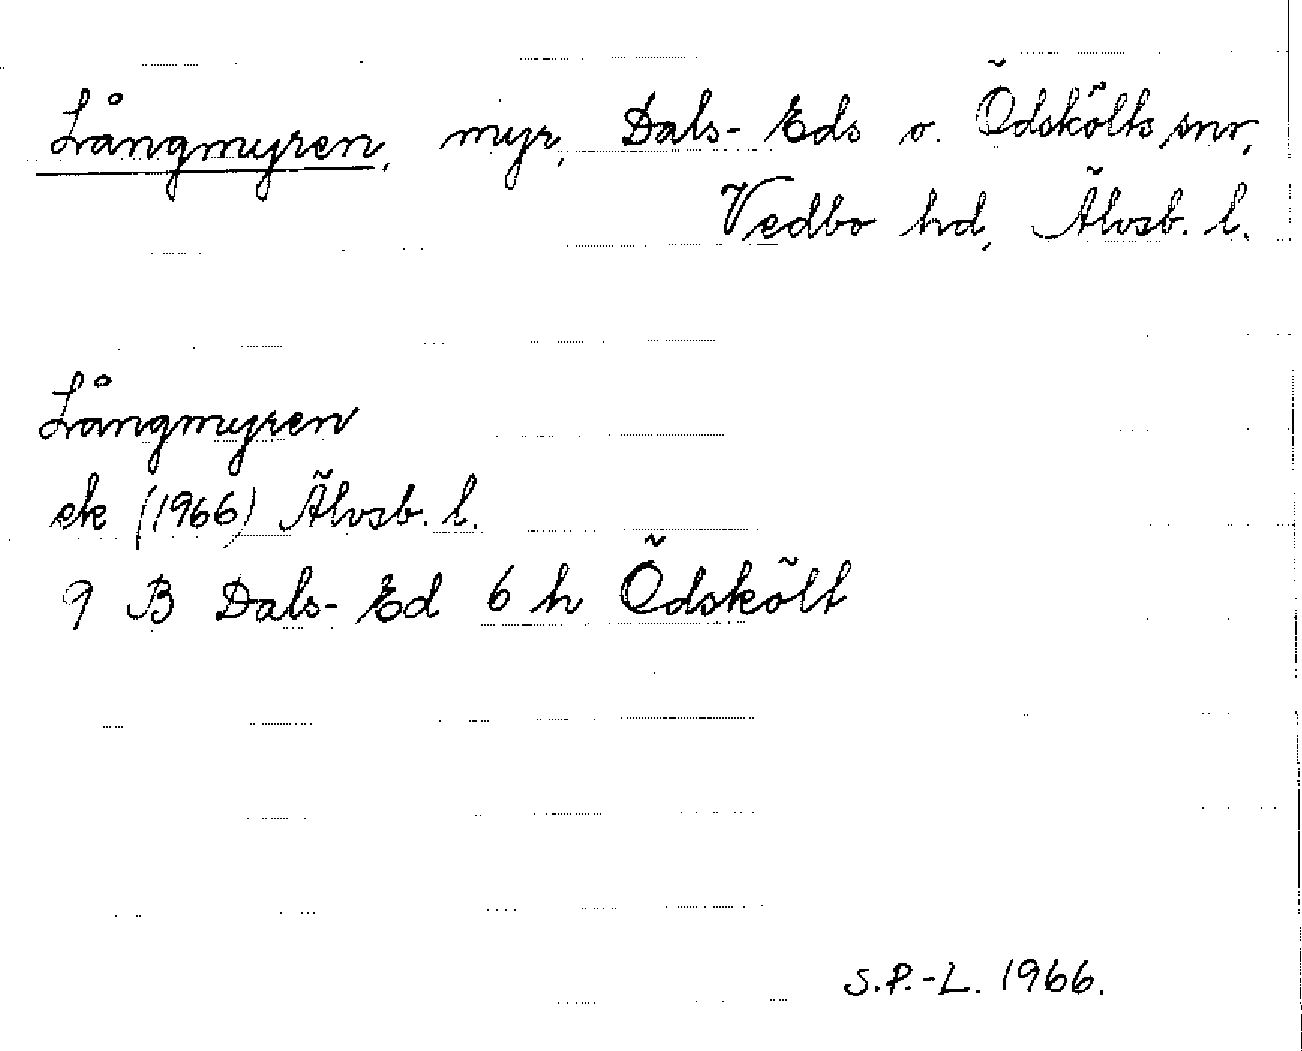 Långmyren, myr, Dals-Eds o. Ödskölts snr,
Vedbo hd, Älvsb. l.
Långmyren
ek (1966) Älvsb. l.
9 B Dals-Ed 6 h Ödskölt
S.P.-L. 1966.